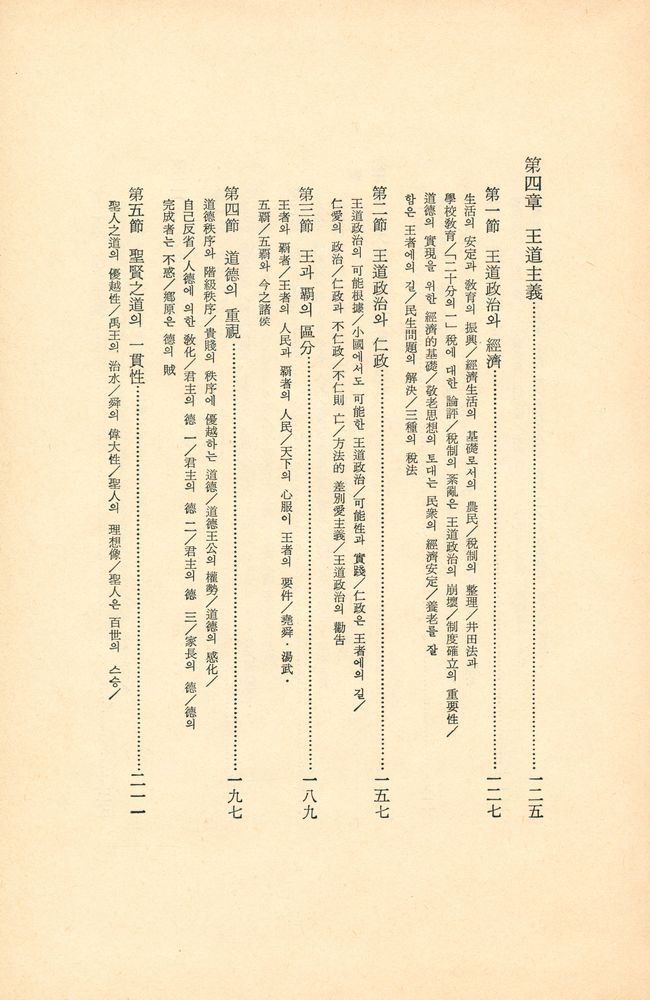 第四章 王道主義……………………一二五
第一節 王道政治와 經濟……………………一二七
生活의 安定과 敎育의 振興／經濟生活의 基礎로서의 農民／稅制의 整理／井田法과
學校敎育／「二十分의 一」稅에 대한 論評／稅制의 紊亂은 王道政治의 崩壞／制度確立의 重要性／
道德의 實現을 위한 經濟的基礎／敬老思想의 토대는 民衆의 經濟安定／養老를 잘
함은 王者에의 길／民生問題의 解決／三種의 稅法
第二節 王道政治와 仁政……………………一五七
王道政治의 可能根據／小國에서도 可能한 王道政治／可能性과 實踐／仁政은 王者에의 길／
仁愛의 政治／仁政과 不仁政／不仁則 亡／方法的 差別愛主義／王道政治의 勸告
第三節 王과 覇의 區分……………………一八九
王者와 覇者／王者의 人民과 覇者의 人民／天下의 心服이 王者의 要件／堯舜·湯武·
五覇／五覇와 今之諸侯
第四節 道德의 重視……………………一九七
道德秩序와 階級秩序／貴賤의 秩序에 優越하는 道德／道德王公의 權勢／道德의 感化／
自己反省／人德에 의한 敎化／君主의 德 一／君主의 德 二／君主의 德 三／家長의 德／德의
完成者는 不惑／鄕原은 德의 賊
第五節 聖賢之道의 一貫性……………………二一一
聖人之道의 優越性／禹王의 治水／舜의 偉大性／聖人의 理想像／聖人은 百世의 스승／